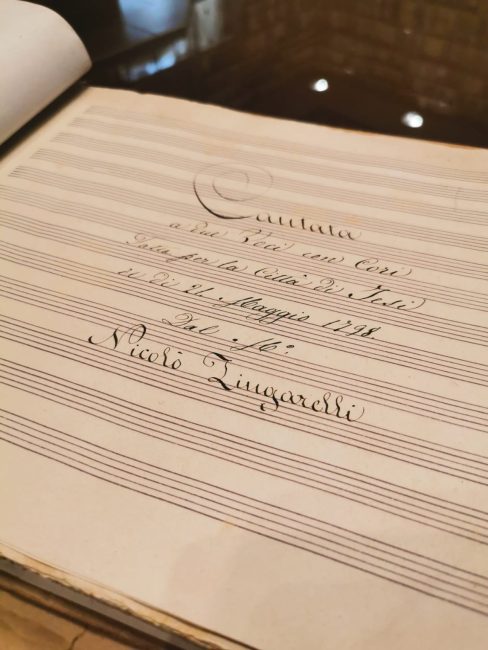 Cantata
a due Voci con Cori
Fatta per la Città di Jesi
li di 21. Maggio 1798.
Dal M.º
Nicolò Zingarelli